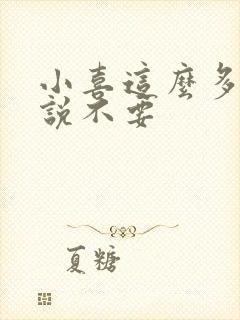 小喜這麼多
說不要
夏糖